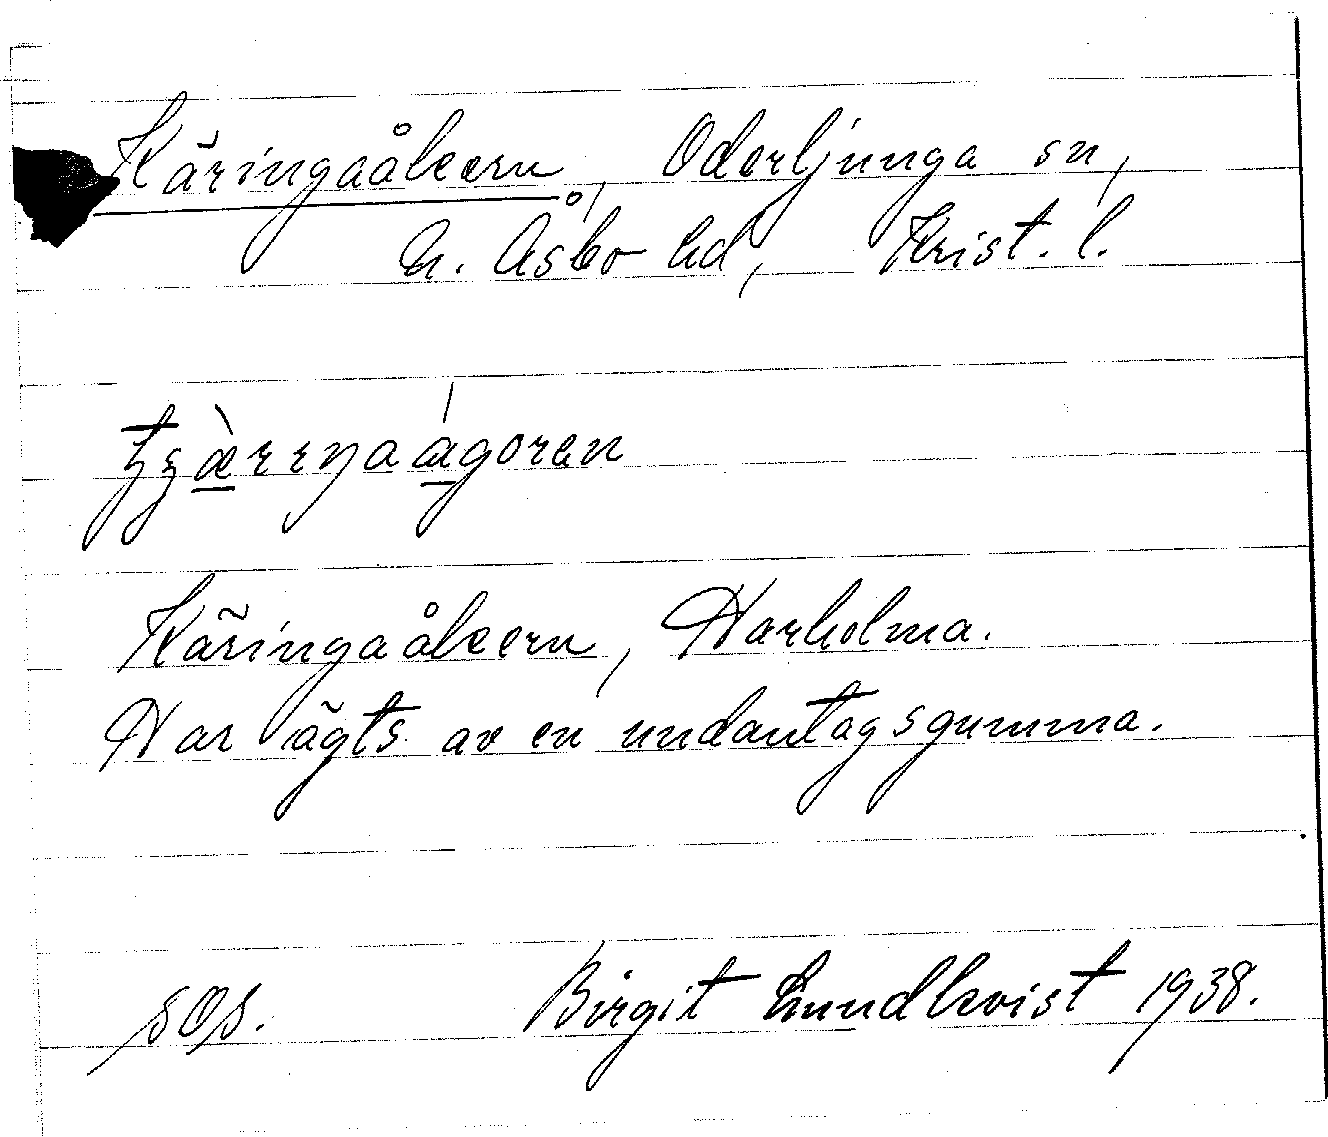 Käringaåkern, Oderljunga sn,
N. Åsbo hd, Krist. l.
Käringaåkern, Harholma.
Har ägts av en undantagsgumma.
SOS. Birgit Lundkvist 1938.